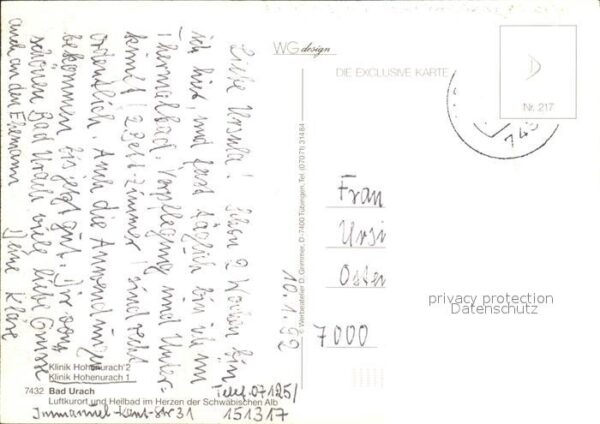 Liebe Ursula! Schon 2 Wochen bin
ich hier, und fast täglich bin ich im
Thermalbad. Verpflegung und Unter-
kunft (2 Bett-Zimmer) sind recht
ordentlich. Auch die Anwendungen
bekommen bis jetzt gut. Dir vom
schönen Bad Urach viele liebe Grüsse
auch an den Ehemann Deine Kläre
10.1.92
WG design
DIE EXCLUSIVE KARTE
Nr. 217
743
© Werbeatelier D. Grimmer, D-7400 Tübingen, Tel. (07071) 31484
Frau
Ursi
Oster
7000
privacy protection
Datenschutz
Klinik Hohenurach 2
Klinik Hohenurach 1
7432 Bad Urach
Luftkurort und Heilbad im Herzen der Schwäbischen Alb
Telef. 07125/
Immanuel-Kant-Str 31 151317